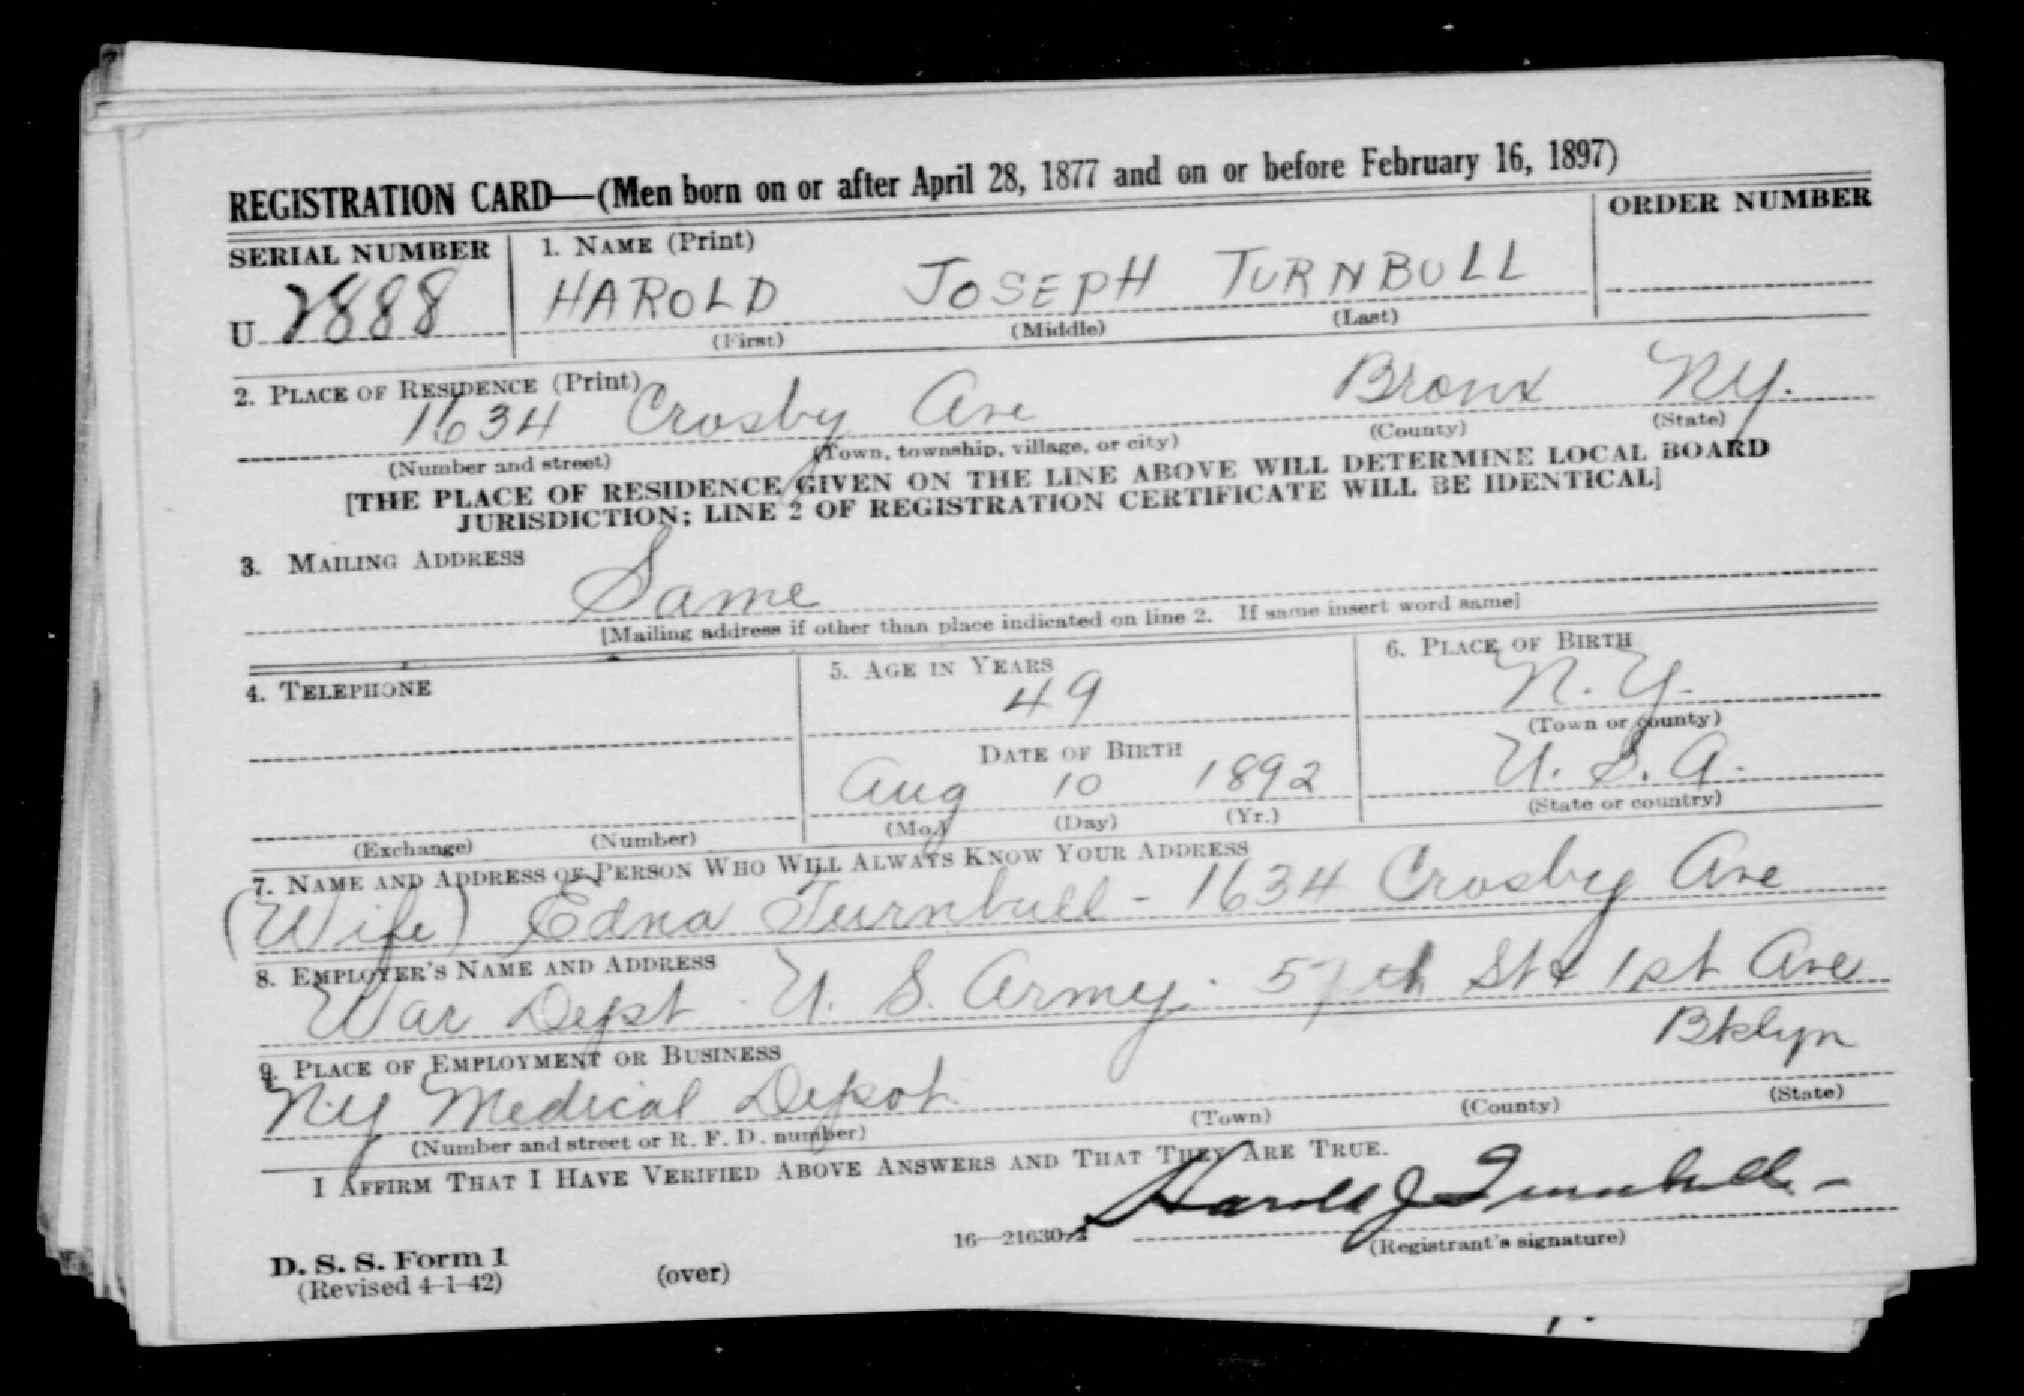 REGISTRATION CARD—(Men born on or after April 28, 1877 and on or before February 16, 1897)
SERIAL NUMBER
1. NAME (Print)
ORDER NUMBER
U 2888
HAROLD JOSEPH TURNBULL
(First) (Middle) (Last)
2. PLACE OF RESIDENCE (Print)
1634 Crosby Ave Bronx NY.
(Number and street) (Town, township, village, or city) (County) (State)
[THE PLACE OF RESIDENCE GIVEN ON THE LINE ABOVE WILL DETERMINE LOCAL BOARD
JURISDICTION; LINE 2 OF REGISTRATION CERTIFICATE WILL BE IDENTICAL]
3. MAILING ADDRESS
Same
[Mailing address if other than place indicated on line 2. If same insert word same]
4. TELEPHONE
(Exchange) (Number)
5. AGE IN YEARS
49
DATE OF BIRTH
Aug 10 1892
(Mo.) (Day) (Yr.)
6. PLACE OF BIRTH
N.Y.
(Town or county)
U.S.A.
(State or country)
7. NAME AND ADDRESS OF PERSON WHO WILL ALWAYS KNOW YOUR ADDRESS
(Wife) Edna Turnbull - 1634 Crosby Ave
8. EMPLOYER'S NAME AND ADDRESS
War Dept U. S. Army. 57th St & 1st Ave
Bklyn
9. PLACE OF EMPLOYMENT OR BUSINESS
NY Medical Depot
(Number and street or R. F. D. number) (Town) (County) (State)
I AFFIRM THAT I HAVE VERIFIED ABOVE ANSWERS AND THAT THEY ARE TRUE.
Harold J Turnbull
D. S. S. Form 1
(Revised 4-1-42)
(over)
16—21630-2
(Registrant's signature)